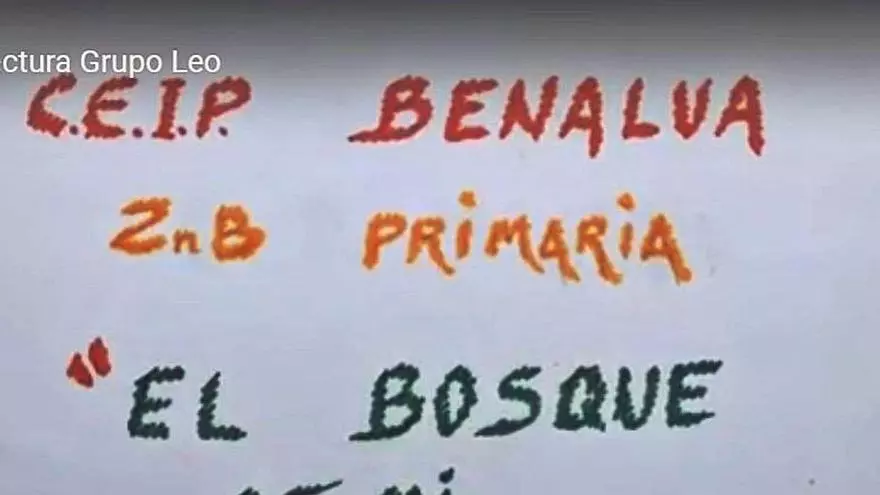 ctura Grupo Leo
C.E.I.P. BENALUA
2nB PRIMARIA
"EL BOSQUE